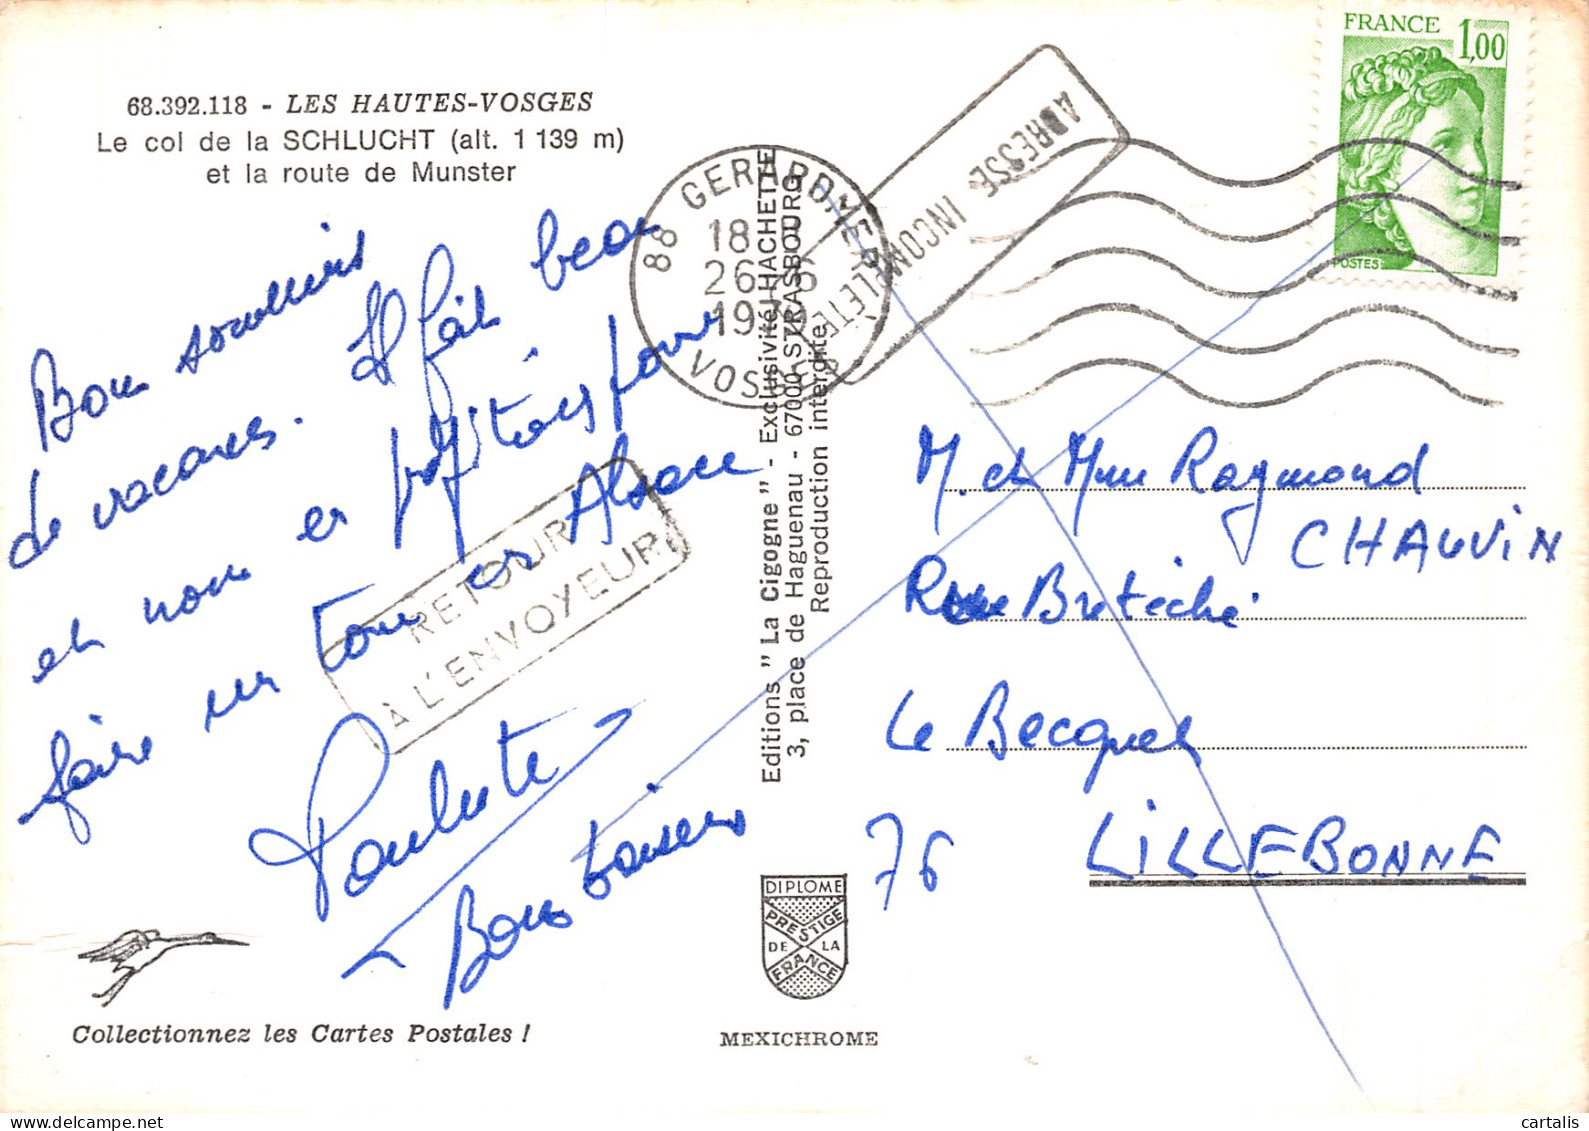 68.392.118 - LES HAUTES-VOSGES
Le col de la SCHLUCHT (alt. 1 139 m)
et la route de Munster
Bons souvenirs
de vacances. Il fait beau
et nous en profitons pour
faire un tour en Alsace
Paulette
Bons baisers
RETOUR
À L'ENVOYEUR
Collectionnez les Cartes Postales !
88 GERARDMER
18
26
VOSGES
ADRESSE INCOMPLETE
Editions " La Cigogne " - Exclusivité HACHETTE
3, place de Haguenau - 67000 STRASBOURG
Reproduction interdite
DIPLOME
PRESTIGE
DE LA
FRANCE
MEXICHROME
FRANCE 1,00
POSTES
M. et Mme Raymond
CHAUVIN
Rue Bretèche
Le Becquet
76 LILLEBONNE
cartalis